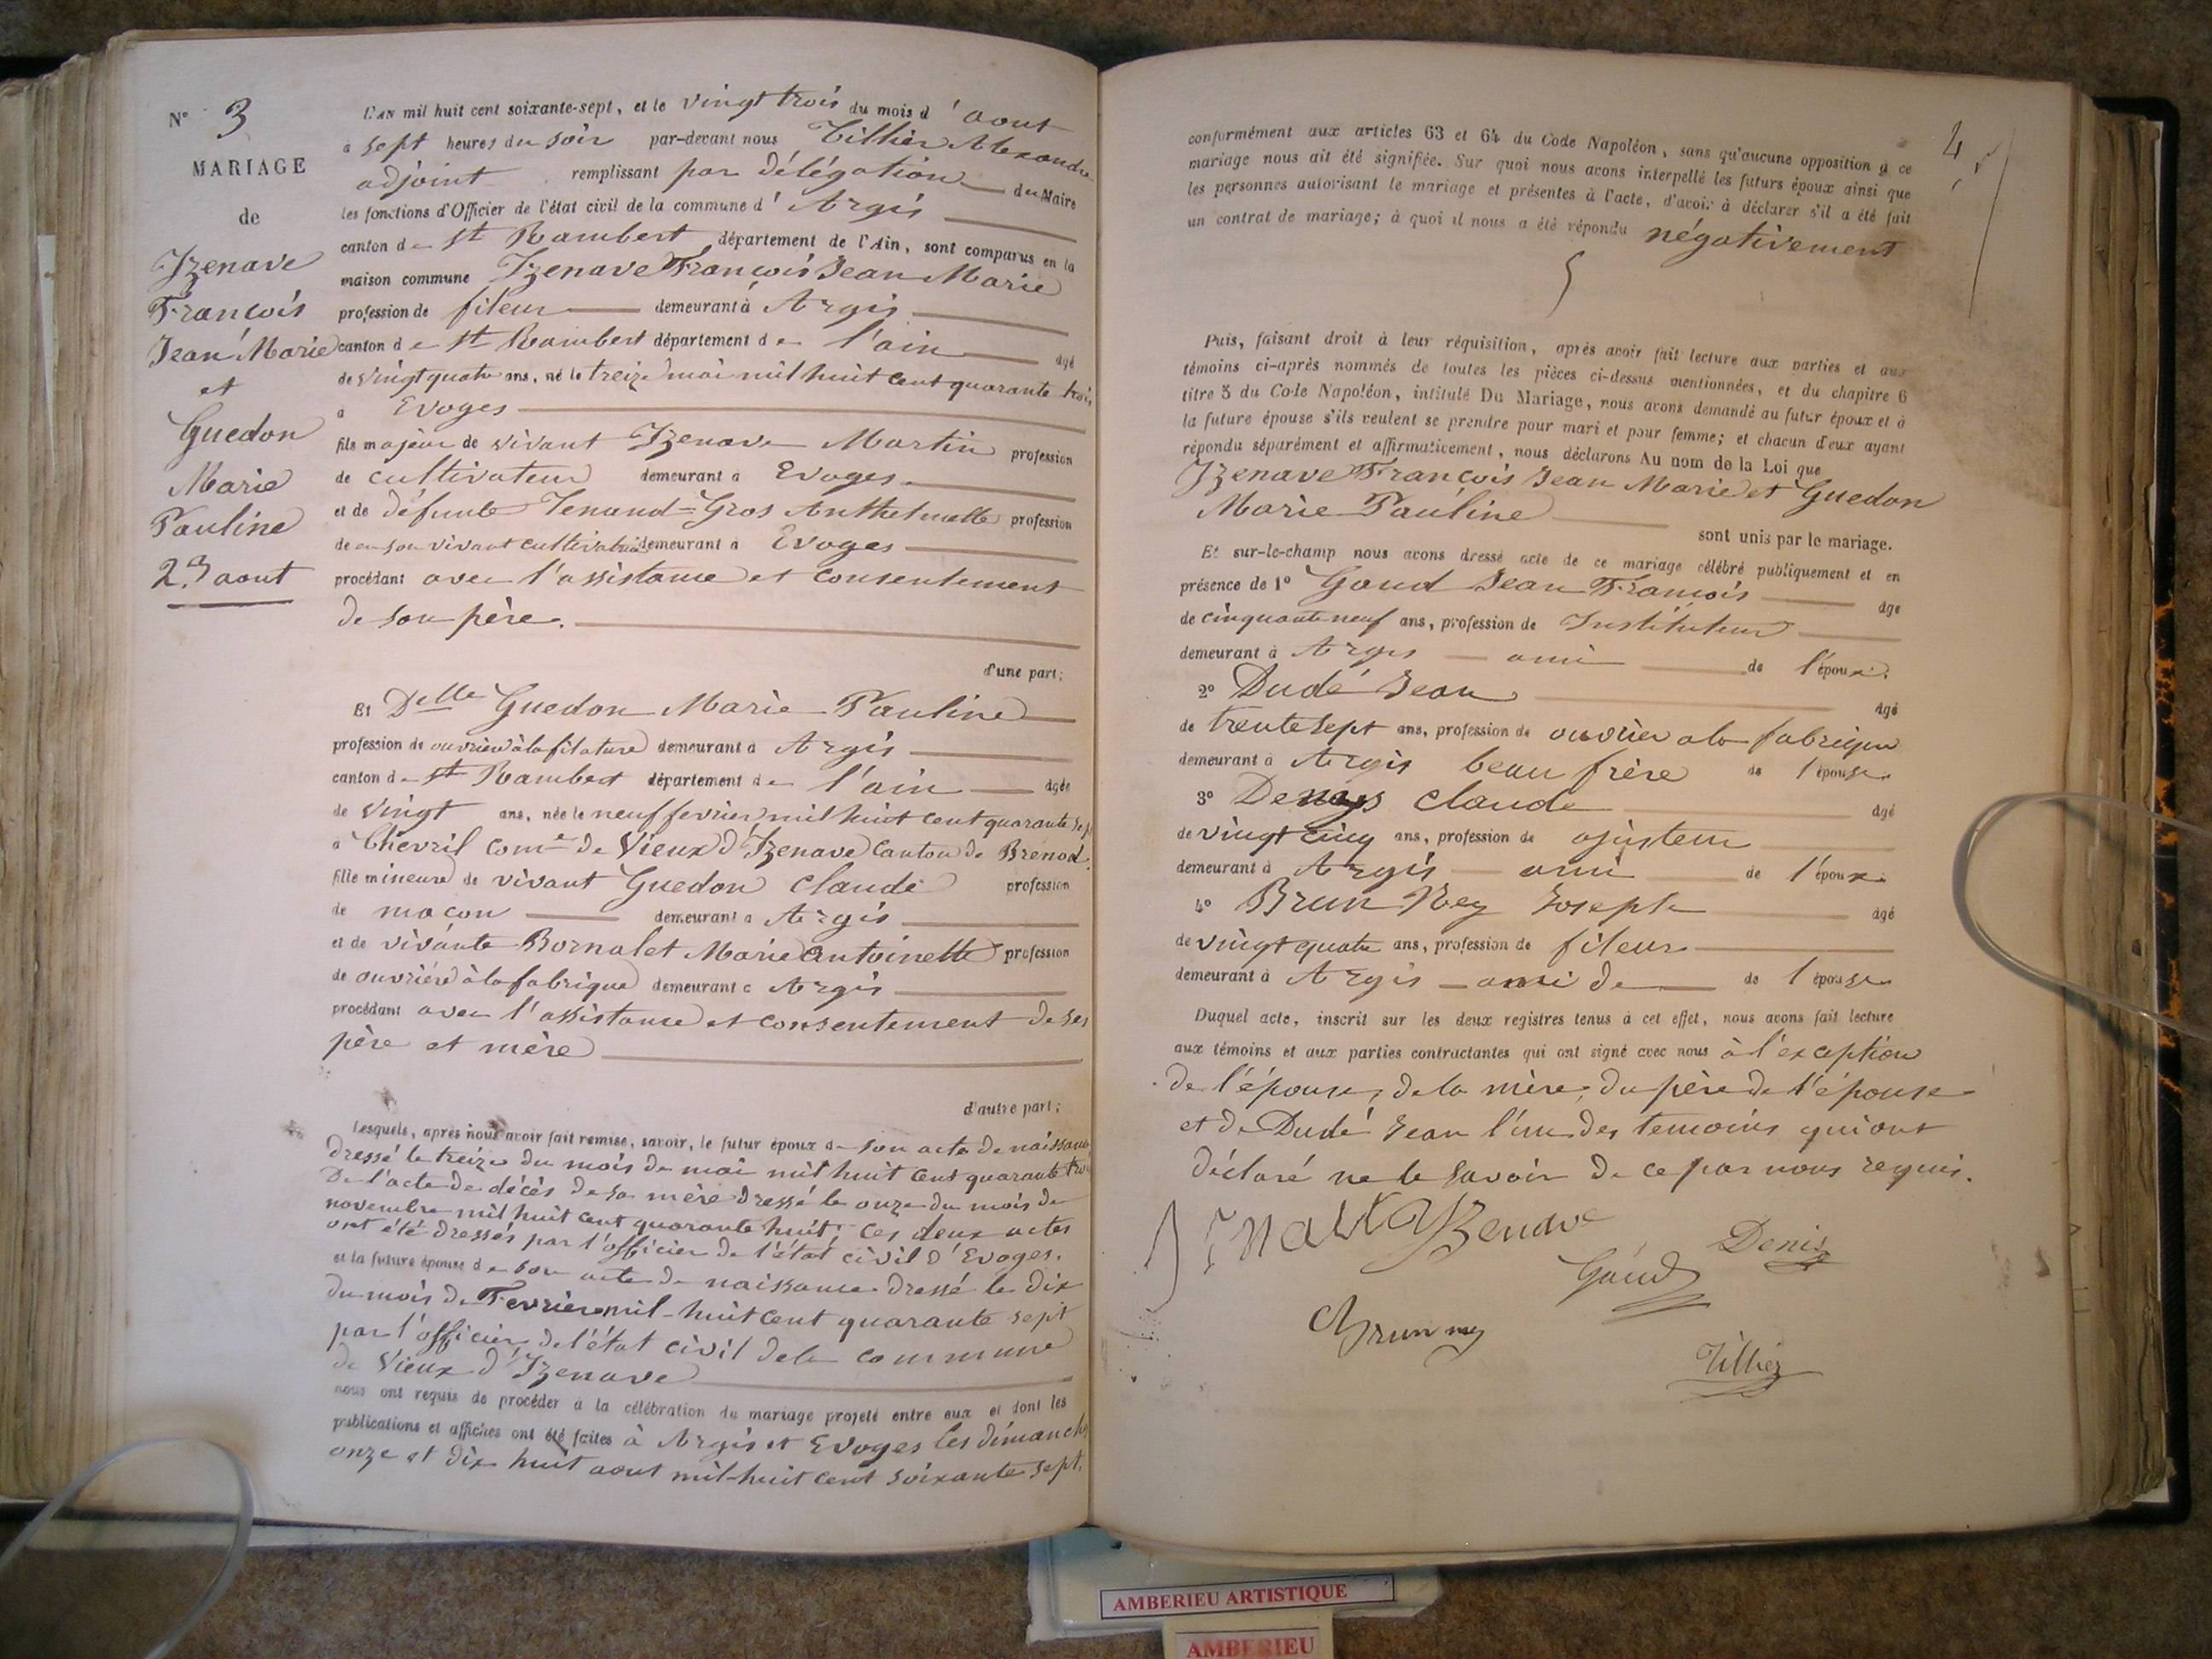 N° 3
MARIAGE
de
Izenave
François
Jean Marie
et
Guedon
Marie
Pauline
23 aout
L'AN mil huit cent soixante-sept, et le vingt trois du mois d'aout
à sept heures du soir par-devant nous Tillier Alexandre
adjoint remplissant par délégation du Maire
les fonctions d'Officier de l'état civil de la commune d'Argis
canton de St Rambert département de l'Ain, sont comparus en la
maison commune Izenave François Jean Marie
profession de fileur demeurant à Argis
canton de St Rambert département de l'ain âgé
de vingt quatre ans, né le treize mai mil huit cent quarante trois
à Evoges
fils majeur de vivant Izenave Martin profession
de cultivateur demeurant à Evoges
et de défunte Tenand-Gros Anthelmette profession
de en son vivant cultivatrice demeurant à Evoges
procédant avec l'assistance et consentement
de son père.
d'une part;
Et Delle Guedon Marie Pauline
profession de ouvrière à la filature demeurant à Argis
canton de St Rambert département de l'ain âgée
de vingt ans, née le neuf fevrier mil huit cent quarante sept
à Chevril come de Vieux d'Izenave Canton de Brenod
fille mineure de vivant Guedon Claude profession
de maçon demeurant à Argis
et de vivante Bornalet Marie Antoinette profession
de ouvrière à la fabrique demeurant à Argis
procédant avec l'assistance et consentement de ses
père et mère
d'autre part;
Lesquels, après nous avoir fait remise, savoir, le futur époux de son acte de naissance
dressé le treize du mois de mai mil huit cent quarante trois
De l'acte de décès de sa mère dressé le onze du mois de
novembre mil huit cent quarante huit, ces deux actes
ont été dressés par l'officier de l'état civil d'Evoges.
et la future épouse de son acte de naissance dressé le dix
du mois de Fevrier mil-huit cent quarante sept
par l'officier de l'état civil de la commune
de Vieux d'Izenave
nous ont requis de procéder à la célébration du mariage projeté entre eux et dont les
publications et affiches ont été faites à Argis et Evoges les dimanches
onze et dix huit aout mil-huit cent soixante sept.
4
conformément aux articles 63 et 64 du Code Napoléon, sans qu'aucune opposition à ce
mariage nous ait été signifiée. Sur quoi nous avons interpellé les futurs époux ainsi que
les personnes autorisant le mariage et présentes à l'acte, d'avoir à déclarer s'il a été fait
un contrat de mariage; à quoi il nous a été répondu négativement
Puis, faisant droit à leur réquisition, après avoir fait lecture aux parties et aux
témoins ci-après nommés de toutes les pièces ci-dessus mentionnées, et du chapitre 6
titre 5 du Code Napoléon, intitulé Du Mariage, nous avons demandé au futur époux et à
la future épouse s'ils veulent se prendre pour mari et pour femme; et chacun d'eux ayant
répondu séparément et affirmativement, nous déclarons Au nom de la Loi que
Izenave François Jean Marie et Guedon
Marie Pauline sont unis par le mariage.
Et sur-le-champ nous avons dressé acte de ce mariage célébré publiquement et en
présence de 1° Goud Jean François âgé
de cinquante neuf ans, profession de Instituteur
demeurant à Argis ami de l'époux
2° Dudé Jean âgé
de trente sept ans, profession de ouvrier a la fabrique
demeurant à Argis beau frère de l'épouse
3° Denys Claude âgé
de vingt cinq ans, profession de ajusteur
demeurant à Argis ami de l'époux
4° Brun Ney Joseph âgé
de vingt quatre ans, profession de fileur
demeurant à Argis ami de de l'épouse
Duquel acte, inscrit sur les deux registres tenus à cet effet, nous avons fait lecture
aux témoins et aux parties contractantes qui ont signé avec nous à l'exception
de l'épouse, de la mère, du père de l'épouse
et de Dudé Jean l'un des temoins qui ont
déclaré ne le savoir de ce par nous requis.
Denis
Goud
Brun ney
Tillier
AMBERIEU ARTISTIQUE
AMBERIEU